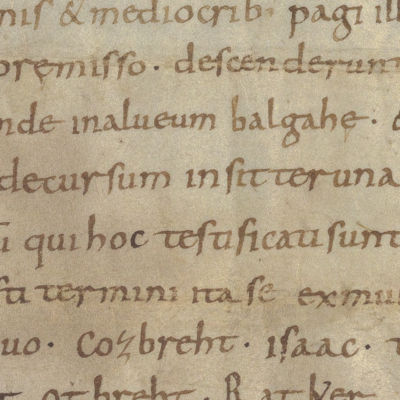 nis & mediocrib· pagi ill
premisso· descenderunt
nde inalueum balgahe·
decursum insitteruna
qui hoc testificati sunt
sti termini ita se exmu
uo· Cozbreht· isaac·
otbreht· Ratker